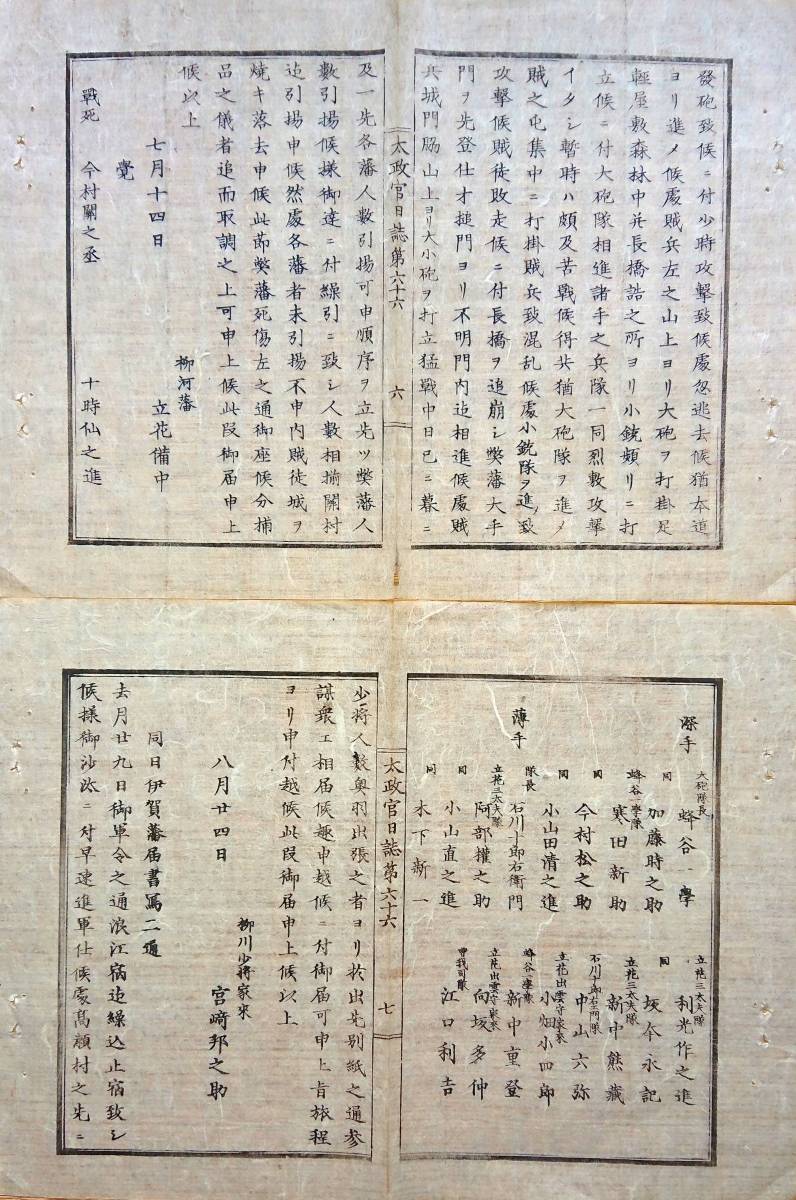 發砲致候ニ付少時攻撃致候處忽逃去候猶本道
ヨリ進メ候處賊兵左之山上ヨリ大砲ヲ打掛足
輕屋敷森林中并長橋詰之所ヨリ小銃頻リニ打
立候ニ付大砲隊相進諸手之兵隊一同烈敷攻撃
イタシ暫時ハ頗及苦戰候得共猶大砲隊ヲ進メ
賊之屯集中ニ打掛賊兵致混乱候處小銃隊ヲ進メ致
攻撃候賊徒敗走候ニ付長橋ヲ追崩シ弊藩大手
門ヲ先登仕才搥門ヨリ不明門内迄相進候處賊
兵城門脇山上ヨリ大小砲ヲ打立猛戰中日已ニ暮ニ
太政官日誌第六十六
六
及一先各藩人數引揚可申順序ヲ立先ツ弊藩人
數引揚候様御達ニ付繰引ニ致シ人數相揃關村
迄引揚申候然處各藩者未引揚不申内賊徒城ヲ
焼キ落去申候此節弊藩死傷左之通御座候分捕
品之儀者追而取調之上可申上候此段御届申上
候以上
柳河藩
七月十四日 立花備中
覺
戰死 今村關之丞 十時仙之進
深手 大砲隊長 蜂谷一學 立花三太夫隊 利光作之進
同 加藤時之助 同 坂本永記
蜂谷一學隊 寒田新助 立花三太夫隊 新中熊藏
同 今村松之助 石川十郎右衛門隊 中山六弥
同 小山田清之進 立花出雲守家来 小畑小四郎
薄手 隊長 石川十郎右衛門 蜂谷一學隊 新中重登
立花三太夫隊 阿部權之助 立花出雲守家来 向坂多仲
同 小山直之進 曽我司隊 江口利吉
同 木下斬一
太政官日誌第六十六
七
少将人數奥羽出張之者ヨリ於出先別紙之通参
謀衆エ相届候趣申越候ニ付御届可申上旨旅程
ヨリ申付越候此段御届申上候以上
柳川少将家来
八月廿四日 宮﨑邦之助
同日伊賀藩届書寫二通
去月廿九日御軍令之通浪江宿迄繰込止宿致シ
候様御沙汰ニ付早速進軍仕候處高瀬村之先ニ